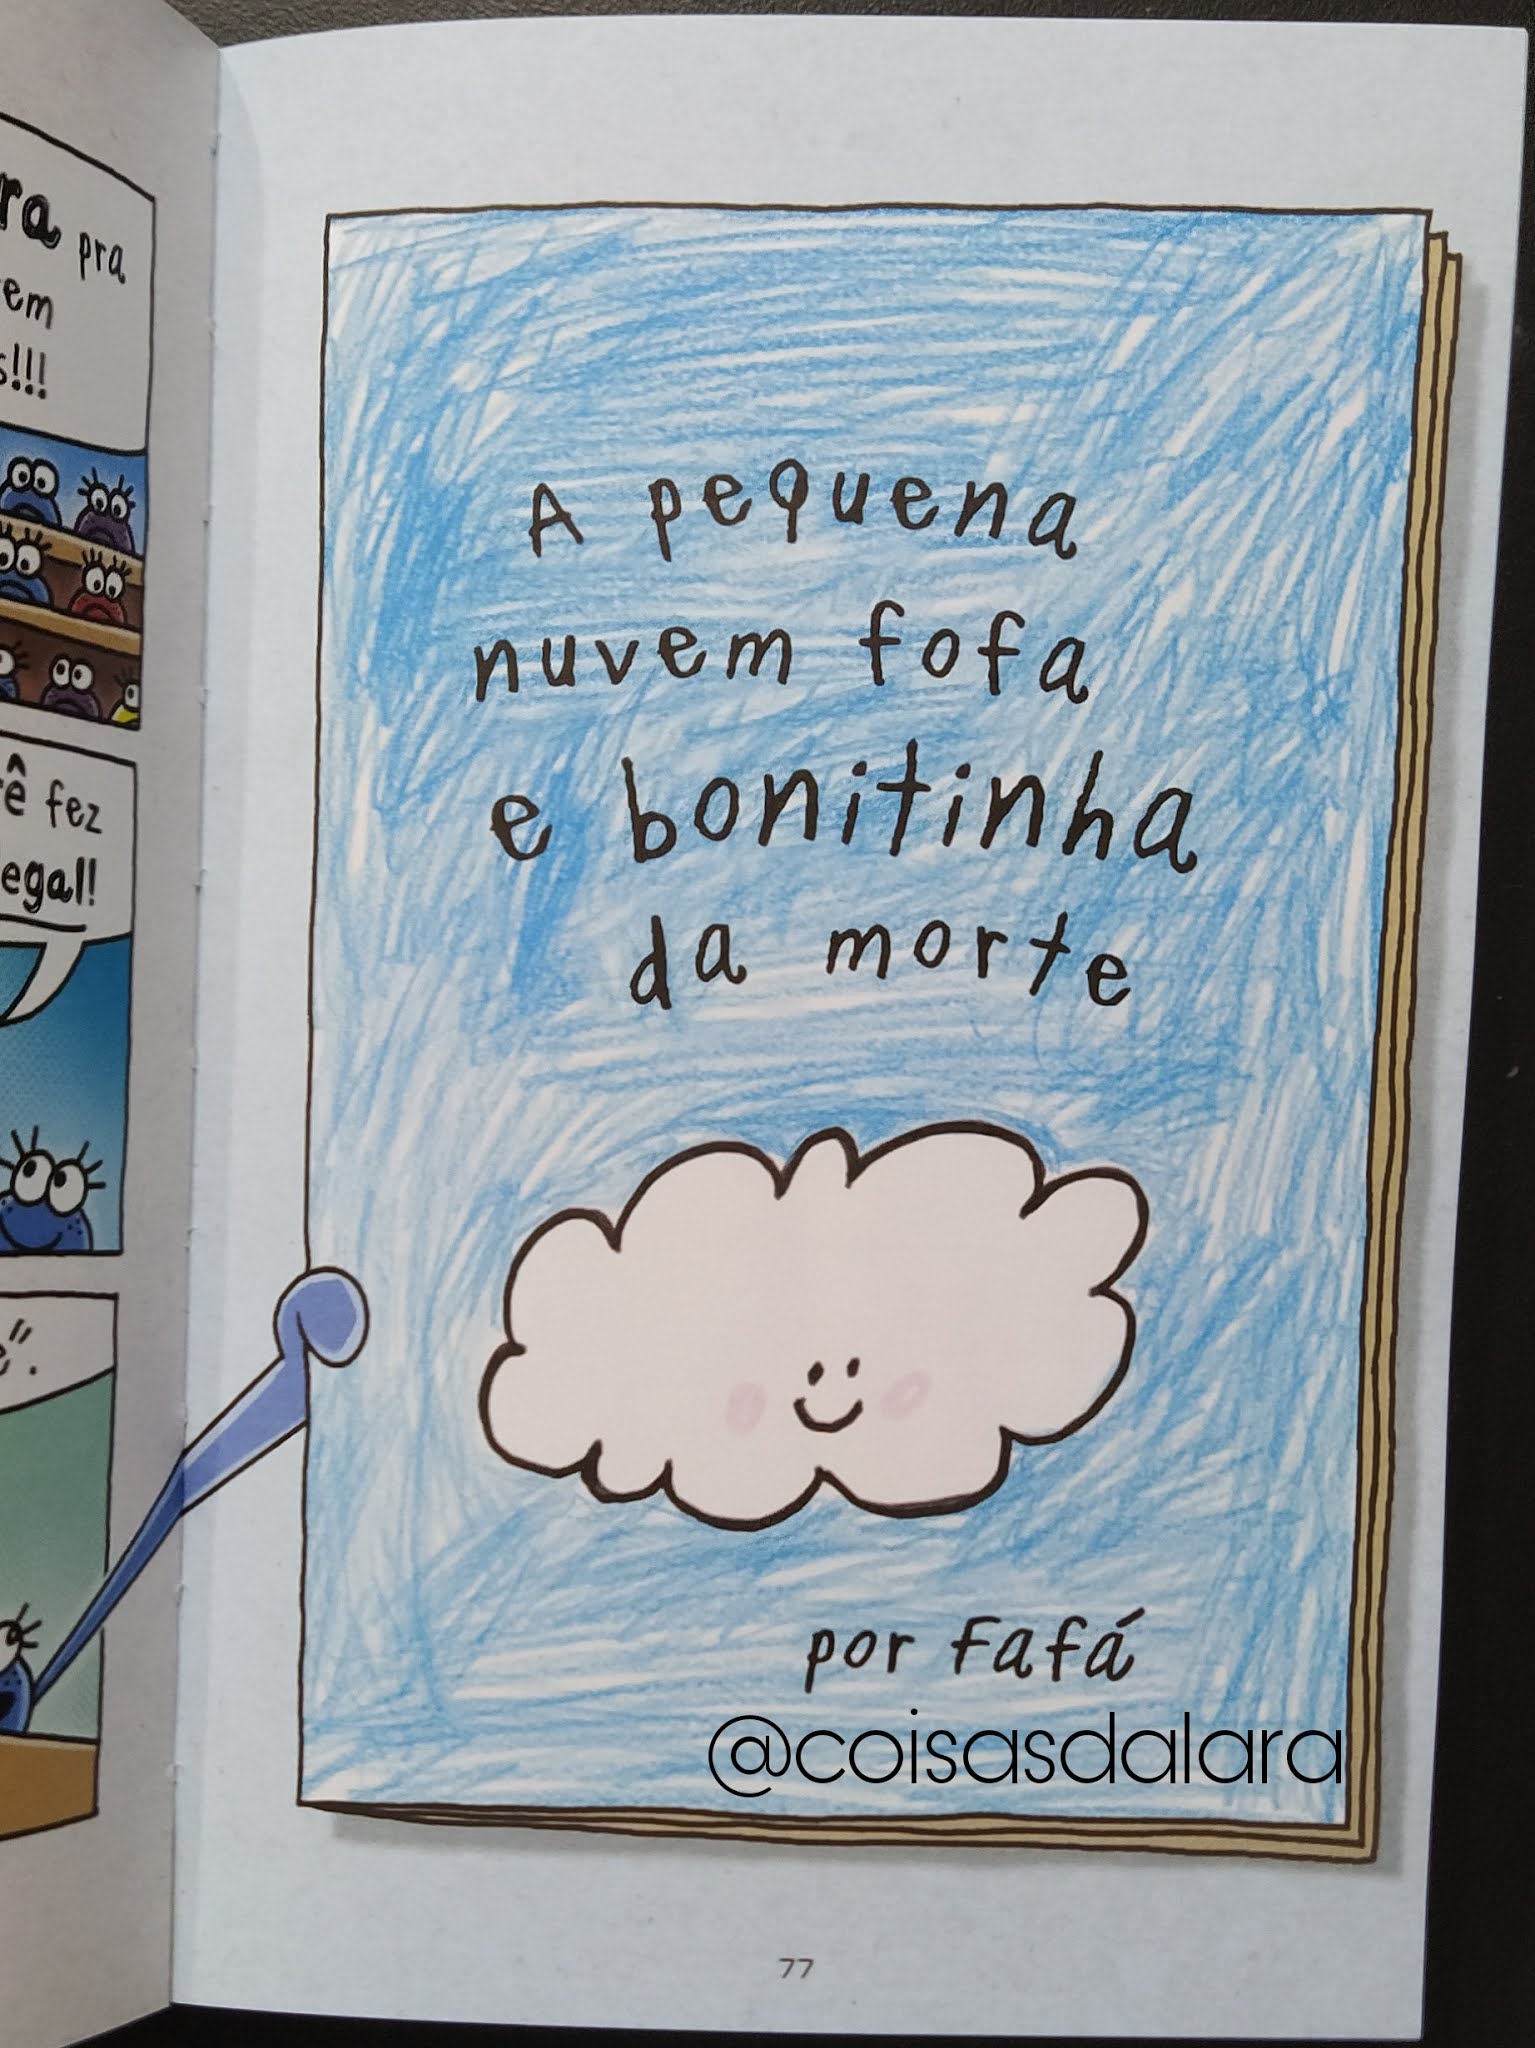 ra pra
em
s!!!
ê fez
legal!
A pequena
nuvem fofa
e bonitinha
da morte
por Fafá
@coisasdalara
77